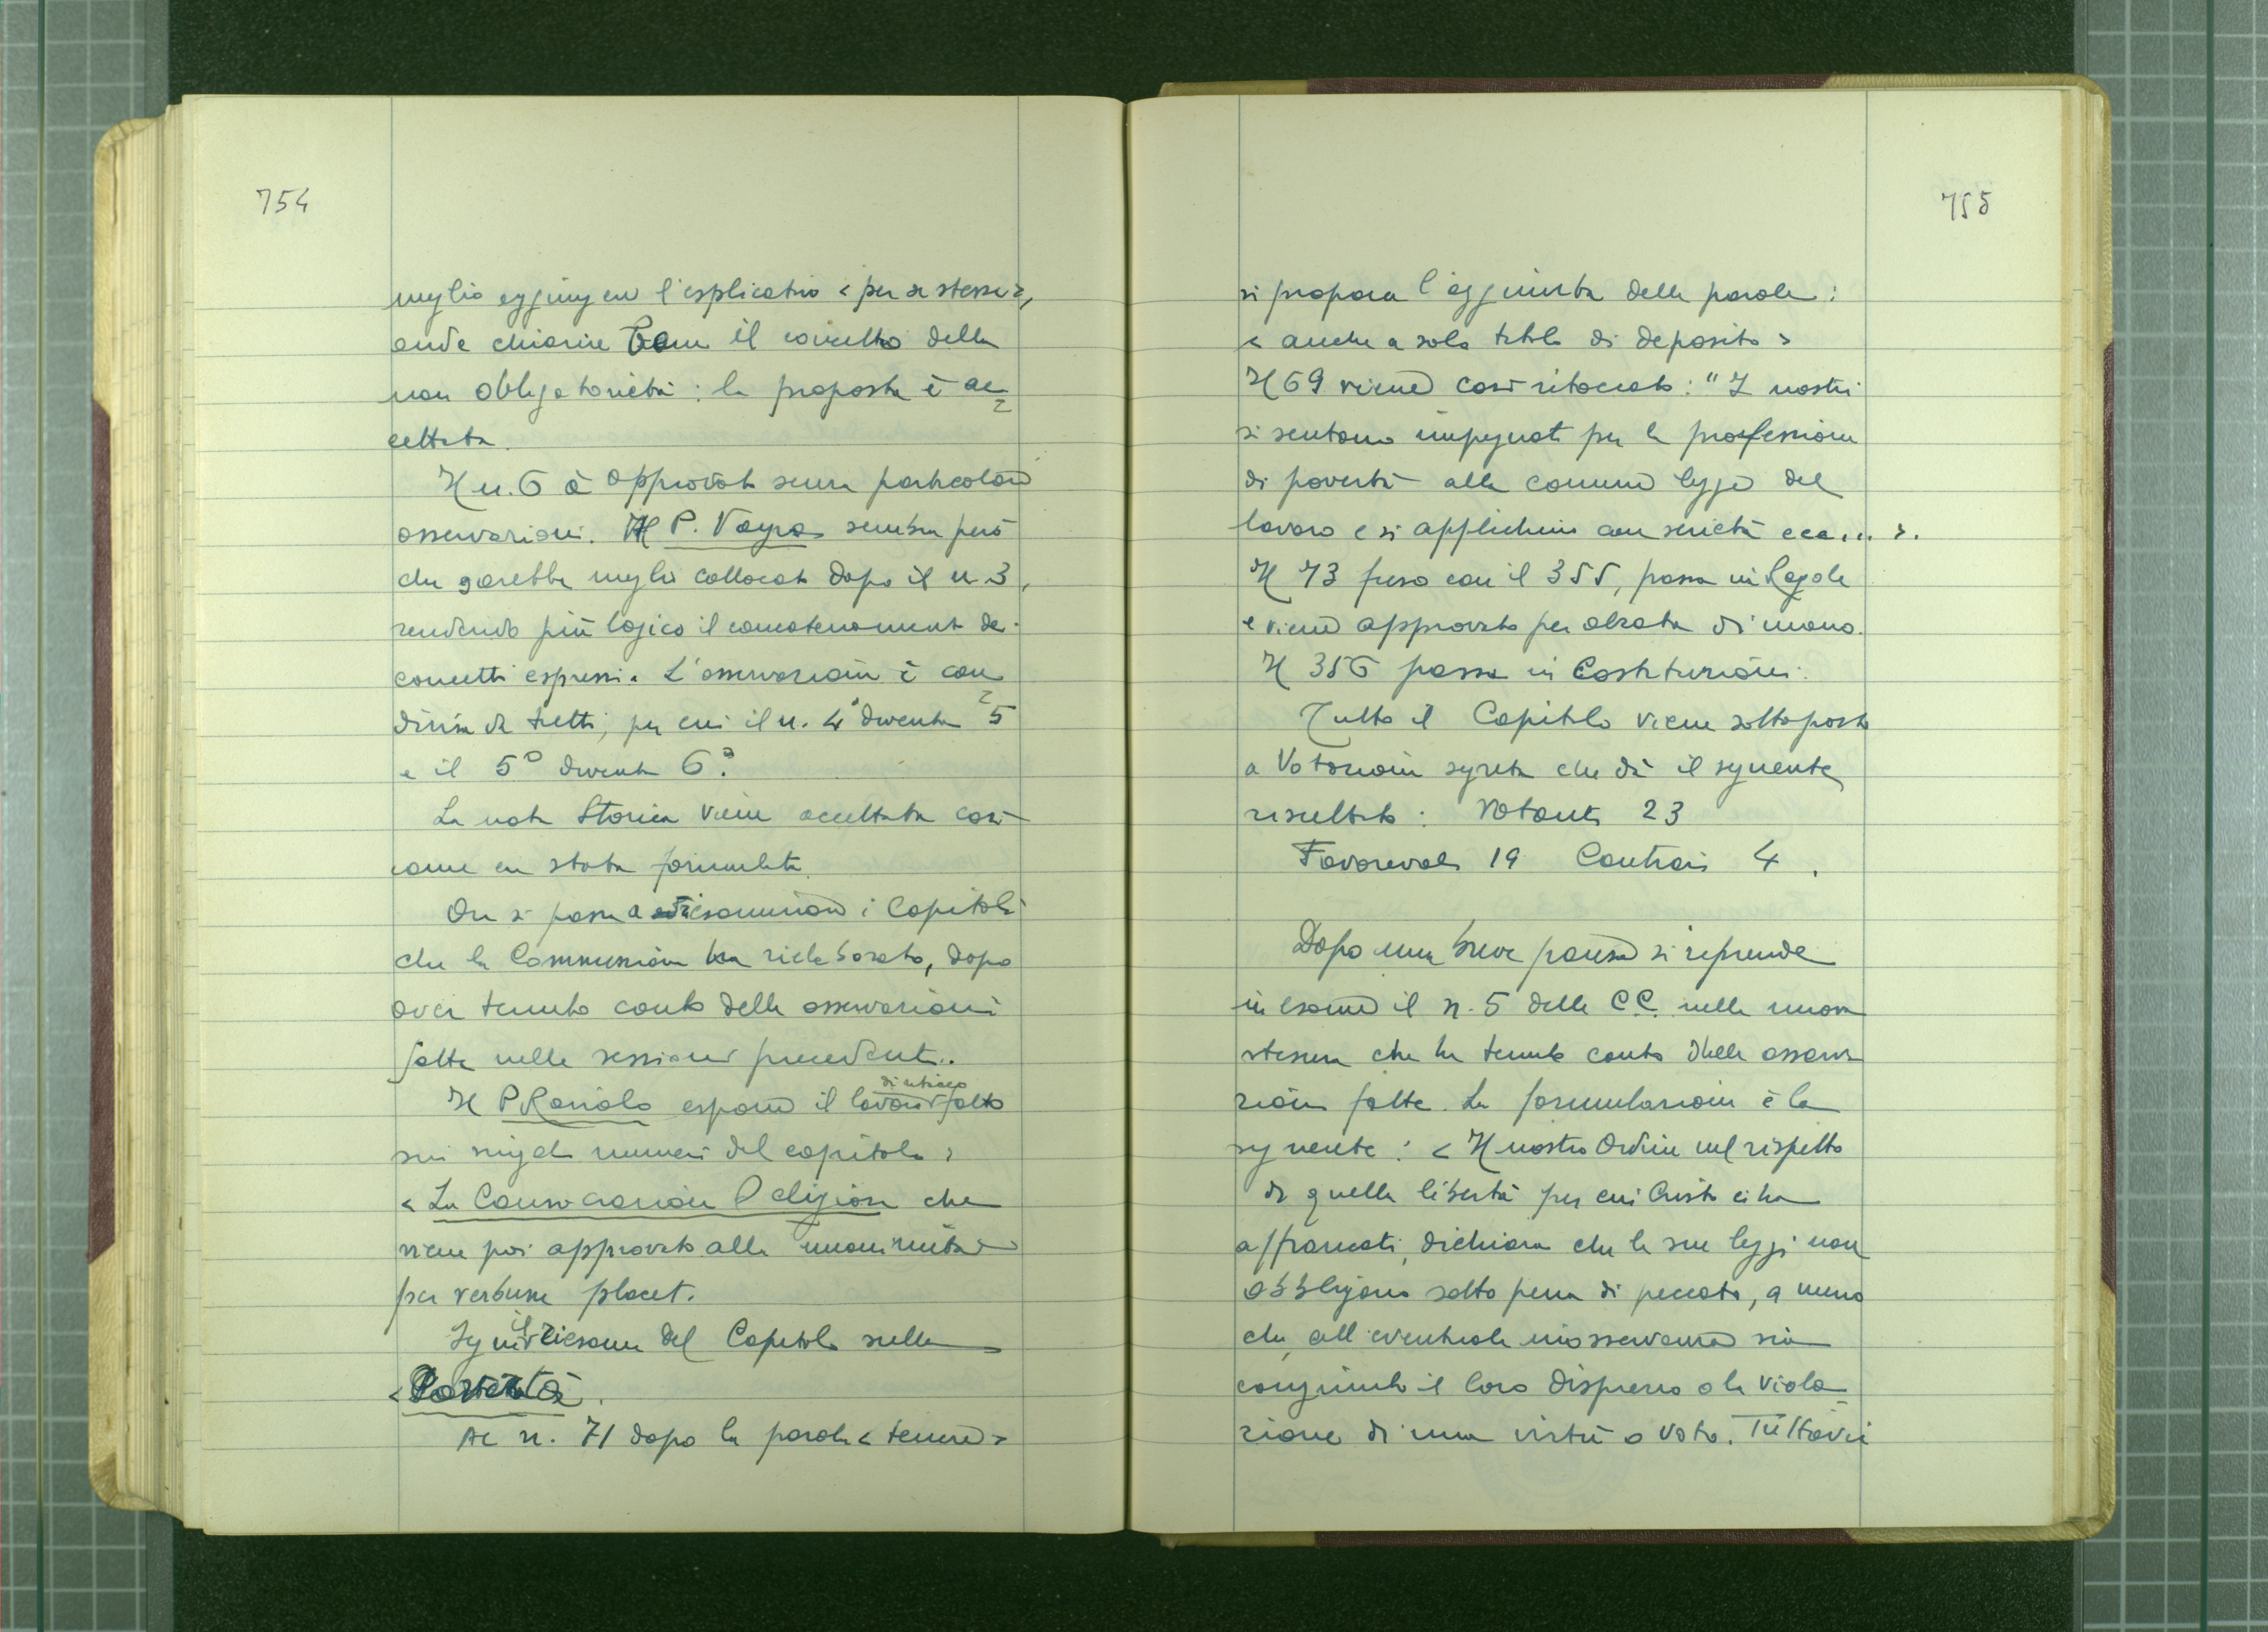 754
meglio aggiungere l'esplicativo < per se stesse >,
onde chiarire bene il concetto della
non obbligatorietà: la proposta è ac=
cettata.
Il n. 6 è approvato senza particolari
osservazioni. Al P. Vayra sembra però
che sarebbe meglio collocato dopo il n. 3,
rendendo più logico il concatenamento dei
concetti espressi. L'osservazione è con=
divisa da tutti, per cui il n. 4° diventa 5
e il 5° diventa 6°.
La nota storica viene accettata così
come era stata formulata.
Ora si passa a riesaminare i Capitoli
che la Commissione ha rielaborato, dopo
aver tenuto conto delle osservazioni
fatte nelle sessioni precedenti.
Il P. Raviolo espone il lavoro di ritocco fatto
sui singoli numeri del capitolo:
< La Consacrazione Religiosa che
viene poi approvato alla unanimità
per verbum placet.
Segue il riesame del Capitolo sulla
< Povertà.
Al n. 71 dopo la parola < tenere >
755
si propone l'aggiunta delle parole:
< anche a solo titolo di deposito >
Il 69 viene così ritoccato: "I nostri
si sentono impegnati per la professione
di povertà alla comune legge del
lavoro e si applichino con serietà ecc... >.
Il 73 fuso con il 355, passa in Regole
e viene approvato per alzata di mano.
Il 356 passa in Costituzioni.
Tutto il Capitolo viene sottoposto
a Votazione segreta che dà il seguente
risultato: Votanti 23
Favorevoli 19 Contrari 4.
Dopo una breve pausa si riprende
in esame il n. 5 delle CC. nella nuova
stesura che ha tenuto conto delle osserva
zioni fatte. La formulazione è la
seguente: < Il nostro Ordine nel rispetto
di quella libertà per cui Cristo ci ha
affrancati, dichiara che le sue leggi non
obbligano sotto pena di peccato, a meno
che, all'eventuale inosservanza sia
congiunto il loro disprezzo o la viola=
zione di una virtù o voto. Tuttavia